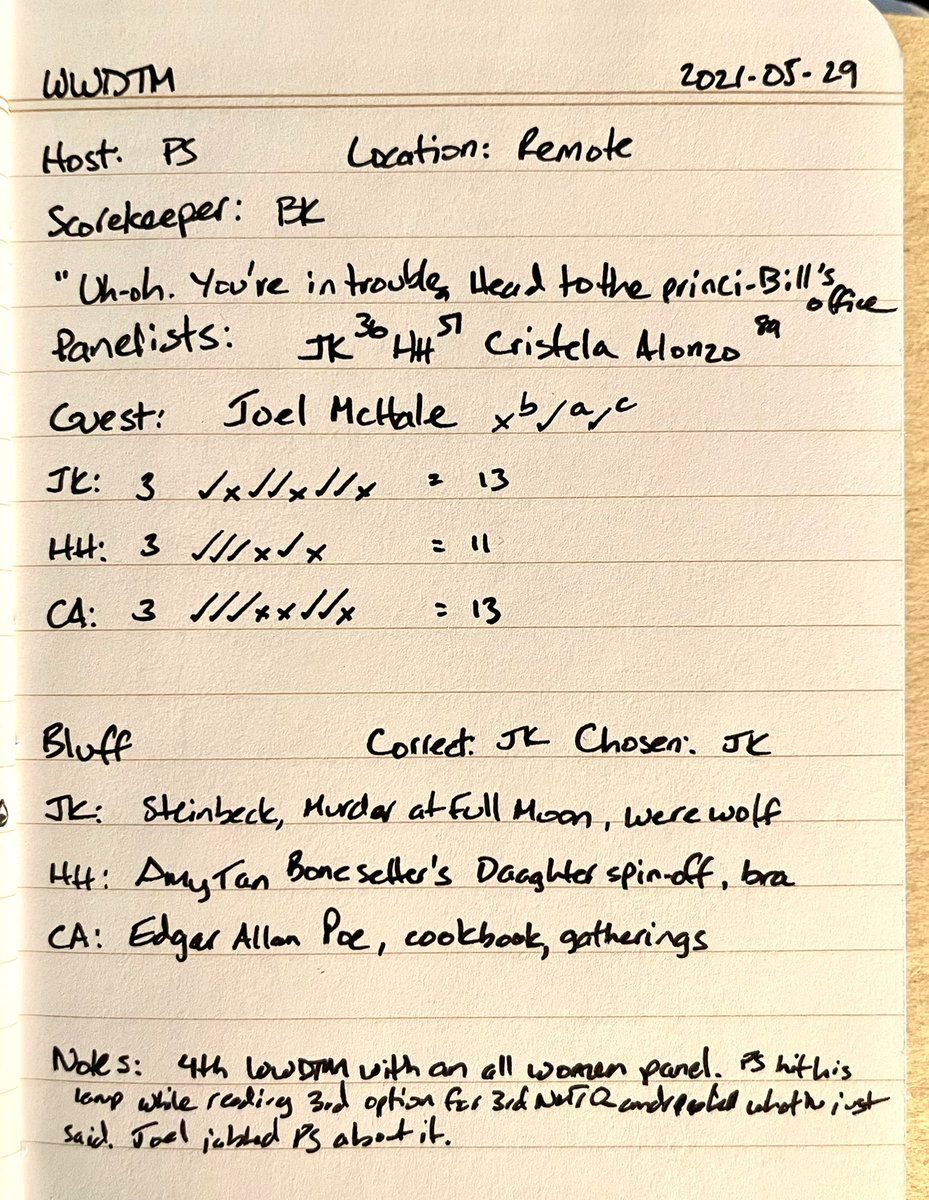 WWDTM 2021-05-29
Host: PS Location: Remote
Scorekeeper: BK
"Uh-oh. You're in trouble, Head to the princi-Bill's
office
Panelists: JK 36 HH 51 Cristela Alonzo
Guest: Joel McHale x b ✓ a ✓ c
JK: 3 ✓x✓✓x✓✓x = 13
HH: 3 ✓✓✓x✓x = 11
CA: 3 ✓✓✓xx✓✓x = 13
Bluff Correct: JK Chosen: JK
JK: Steinbeck, Murder at Full Moon, werewolf
HH: Amy Tan Bonesetter's Daughter spin-off, bra
CA: Edgar Allan Poe, cookbook, gatherings
Notes: 4th WWDTM with an all women panel. PS hit his
lamp while reading 3rd option for 3rd Q and what he just
said. Joel jabbed PS about it.